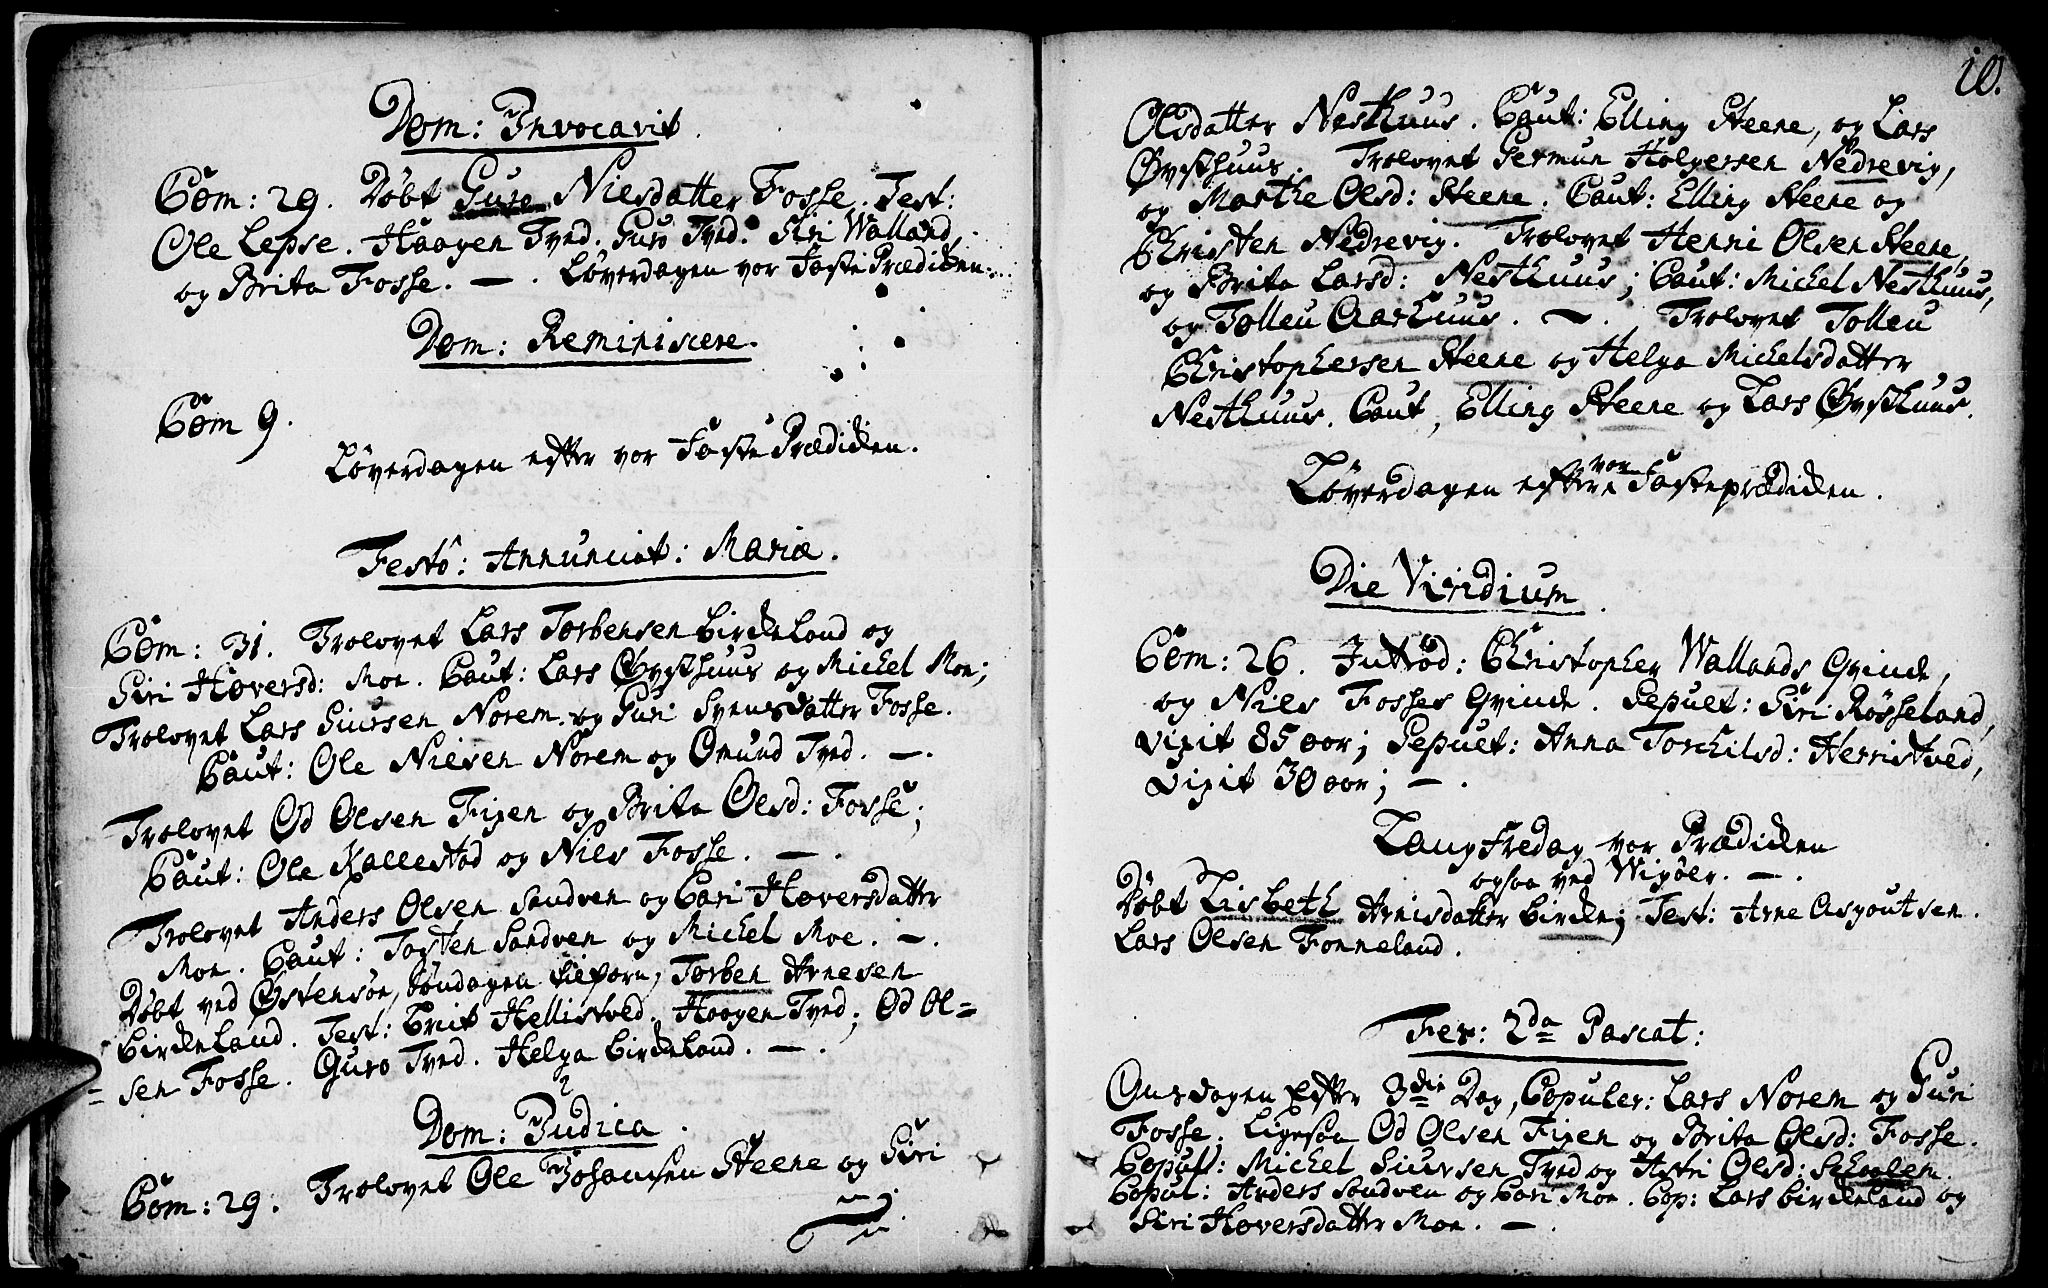 Dom: Invocavit.
Com: 29. Døbt Guro Nielsdatter Fosse. Test:
Ole Lepse. Haagen Tved. Guro Tved. Siri Walland,
og Brita Fosse. — . Løverdagen vor FastePrædicken.
Dom: Reminiscere.
Com 9.
Løverdagen efter vor FastePrædicken.
Festô: Annunciat: Mariæ.
Com: 31. Trolovet Lars Torbensen Birckeland og
Siri Hoversd: Moe. Caut: Lars Øysthuus og Michel Moe;
Trolovet Lars Siursen Norem og Guri Svensdatter Fosse.
Caut: Ole Nielsen Norem og Omund Tved. — .
Trolovet Od Olsen Fixen og Brita Olsd: Fosse;
Caut: Ole Kallestad og Niels Fosse. — .
Trolovet Anders Olsen Sandven og Cari Hoversdatter
Moe. Caut: Tosten Sandven og Michel Moe. — .
Døbt ved Østensøe, Søndagen tilforn, Torben Arnesen
Birckeland. Test: Brit Hellistved. Haagen Tved; Od Ol=
= sen Fosse. Guro Tved. Helga Birckeland. — .
Dom: Judica.
Com: 29. Trolovet Ole Johansen Steene og Siri
10.
Olsdatter Nesthuus. Caut: Elling Steene, og Lars
Øysthuus. Trolovet Germun Holgersen Nedrevig,
og Marthe Olsd: Steene. Caut: Elling Steene og
Christen Nedrevig. Trolovet Henni Olsen Steene,
og Brita Larsd: Nesthuus; Caut: Michel Nesthuus,
og Tolleu Aarhuus. — . Trolovet Tolleu
Christophersen Steene og Helga Michelsdatter
Nesthuus. Caut, Elling Steene og Lars Øysthuus.
Løverdagen efter vor Fasteprædicken.
Die Viridium.
Com: 26. Introd: Christopher Wallands Qvinde,
og Niels Fosses Qvinde. Sepult: Siri Røsseland,
vixit 85 aar; Sepult: Anna Torchilsd: Herristved,
vixit 30 aar; — .
Langfredag vor Prædicken
ogsaa ved Wigøer. — .
Døbt Lisbeth Arnisdatter Bircke; Test: Arne Asgoutsen.
Lars Olsen Fonneland.
Fer: 2da Pascat:
Onsdagen Efter 3die Dag, Copuler: Lars Norem og Guri
Fosse. Ligesaa Od Olsen Fixen og Brita Olsd: Fosse.
Copul: Michel Siursen Tved og Astri Olsd: Schaalen.
Copul: Anders Sandven og Cari Moe. Cop: Lars Birckeland og
Siri Hoversdatter Moe. — .